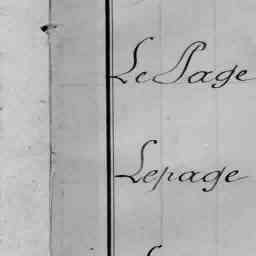 Le Page
Lepage